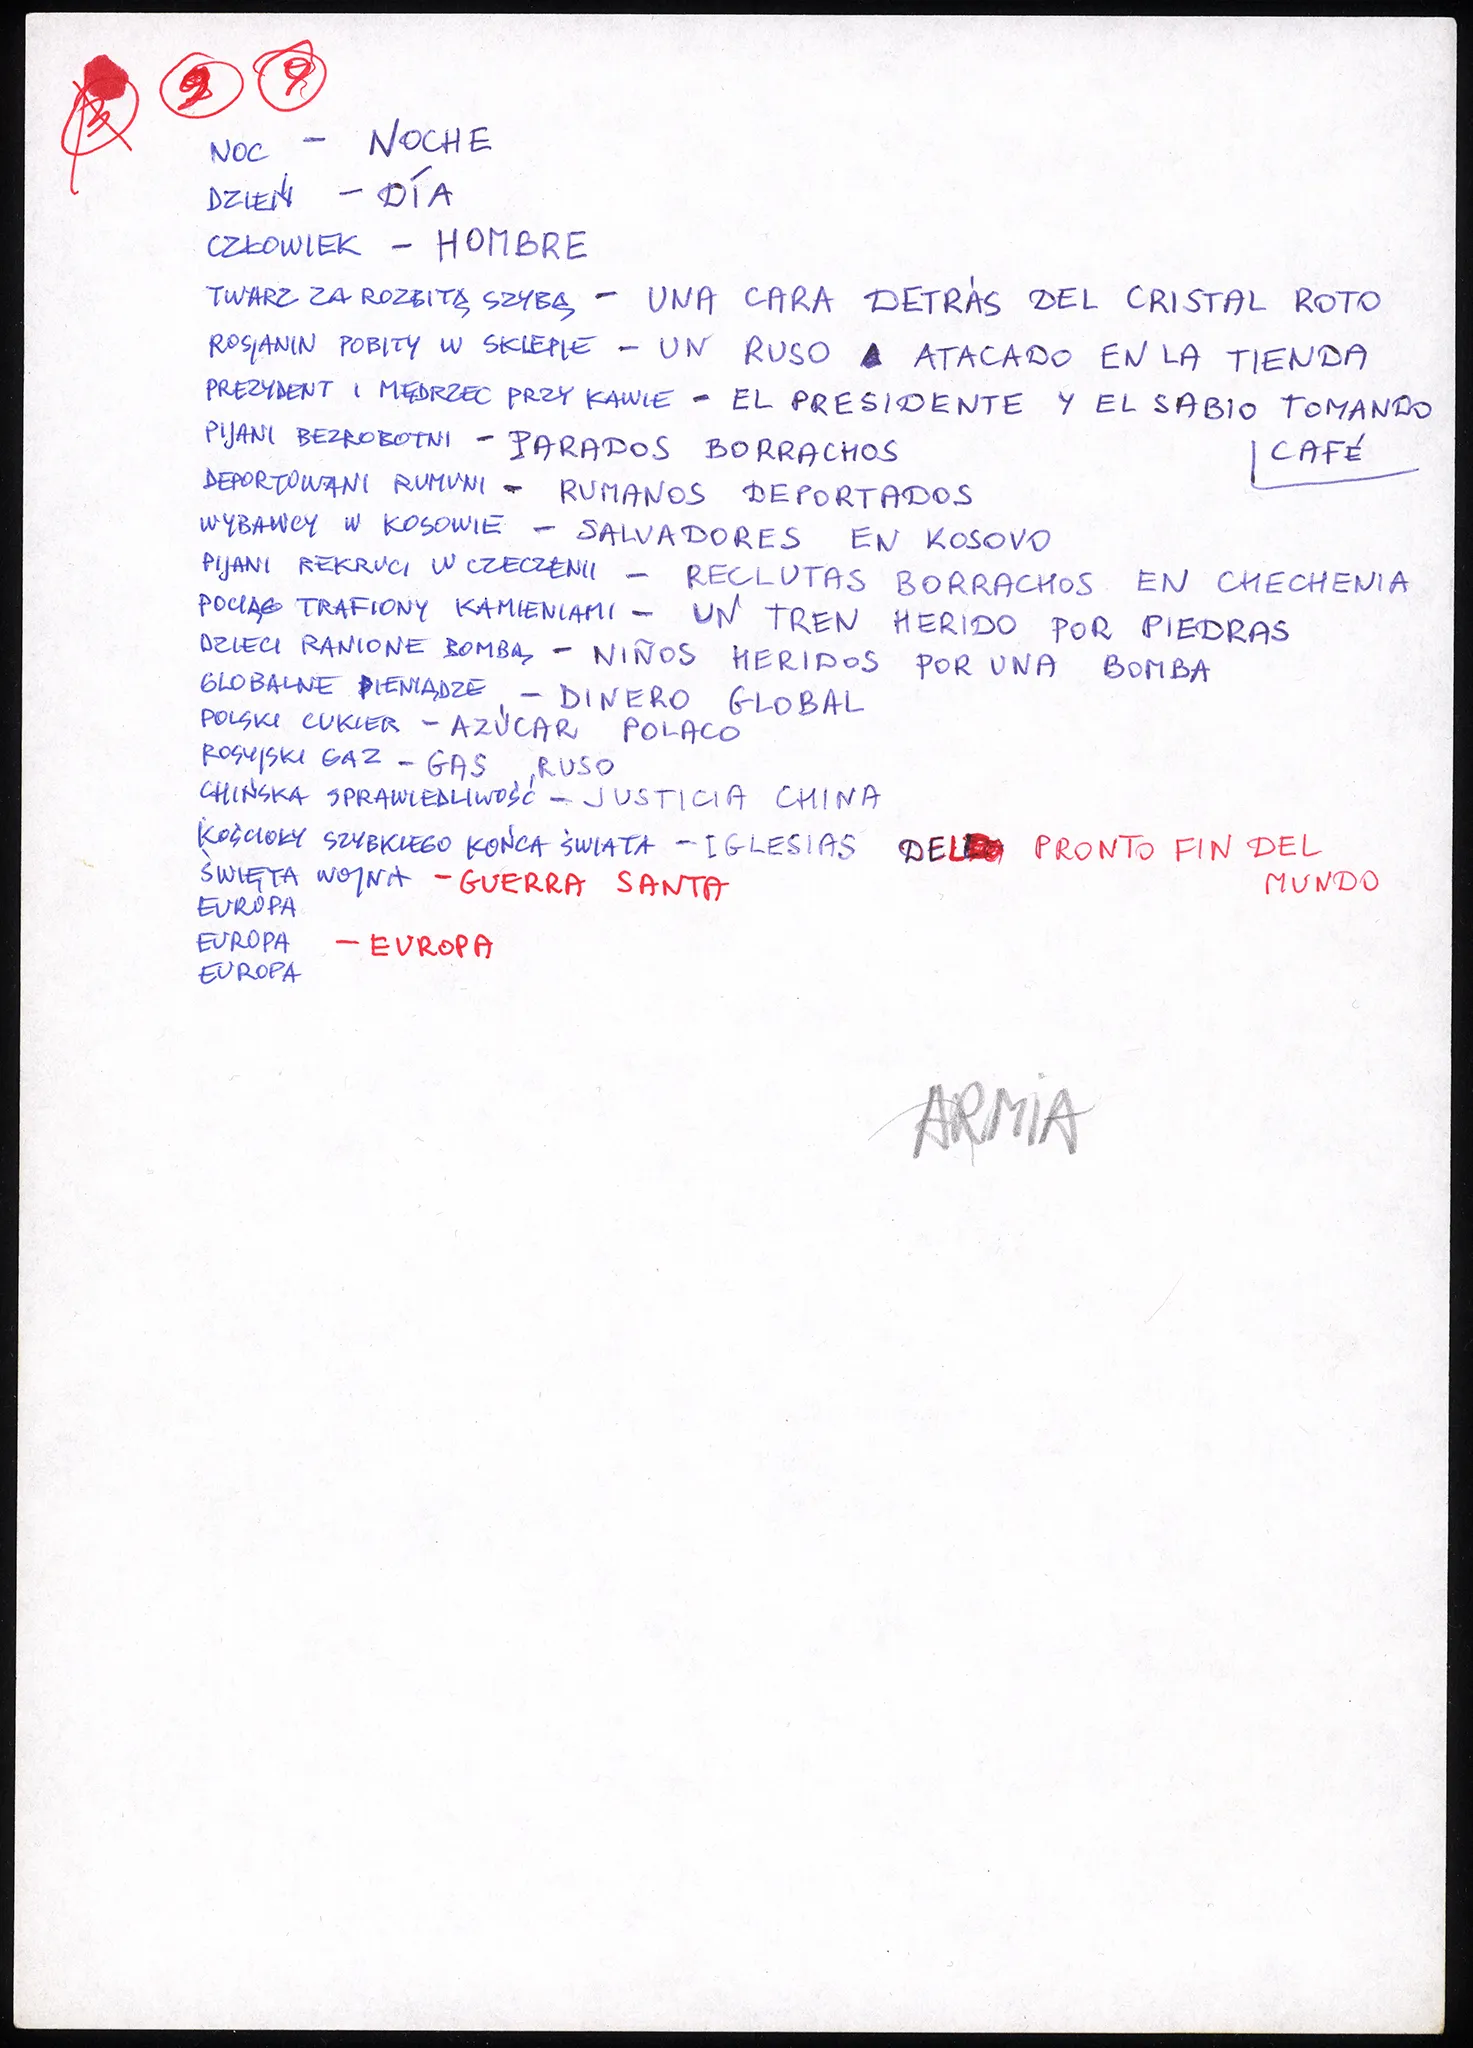 2 9
NOC – NOCHE
DZIEŃ – DÍA
CZŁOWIEK – HOMBRE
TWARZ ZA ROZBITĄ SZYBĄ – UNA CARA DETRÁS DEL CRISTAL ROTO
ROSJANIN POBITY W SKLEPIE – UN RUSO ATACADO EN LA TIENDA
PREZYDENT I MĘDRZEC PRZY KAWIE – EL PRESIDENTE Y EL SABIO TOMANDO
CAFÉ
PIJANI BEZROBOTNI – PARADOS BORRACHOS
DEPORTOWANI RUMUNI – RUMANOS DEPORTADOS
WYBAWCY W KOSOWIE – SALVADORES EN KOSOVO
PIJANI REKRUCI W CZECZENII – RECLUTAS BORRACHOS EN CHECHENIA
POCIĄG TRAFIONY KAMIENIAMI – UN TREN HERIDO POR PIEDRAS
DZIECI RANIONE BOMBĄ – NIÑOS HERIDOS POR UNA BOMBA
GLOBALNE PIENIĄDZE – DINERO GLOBAL
POLSKI CUKIER – AZÚCAR POLACO
ROSYJSKI GAZ – GAS RUSO
CHIŃSKA SPRAWIEDLIWOŚĆ – JUSTICIA CHINA
KOŚCIOŁY SZYBKIEGO KOŃCA ŚWIATA – IGLESIAS DEL PRONTO FIN DEL
MUNDO
ŚWIĘTA WOJNA – GUERRA SANTA
EUROPA
EUROPA – EUROPA
EUROPA
ARMIA